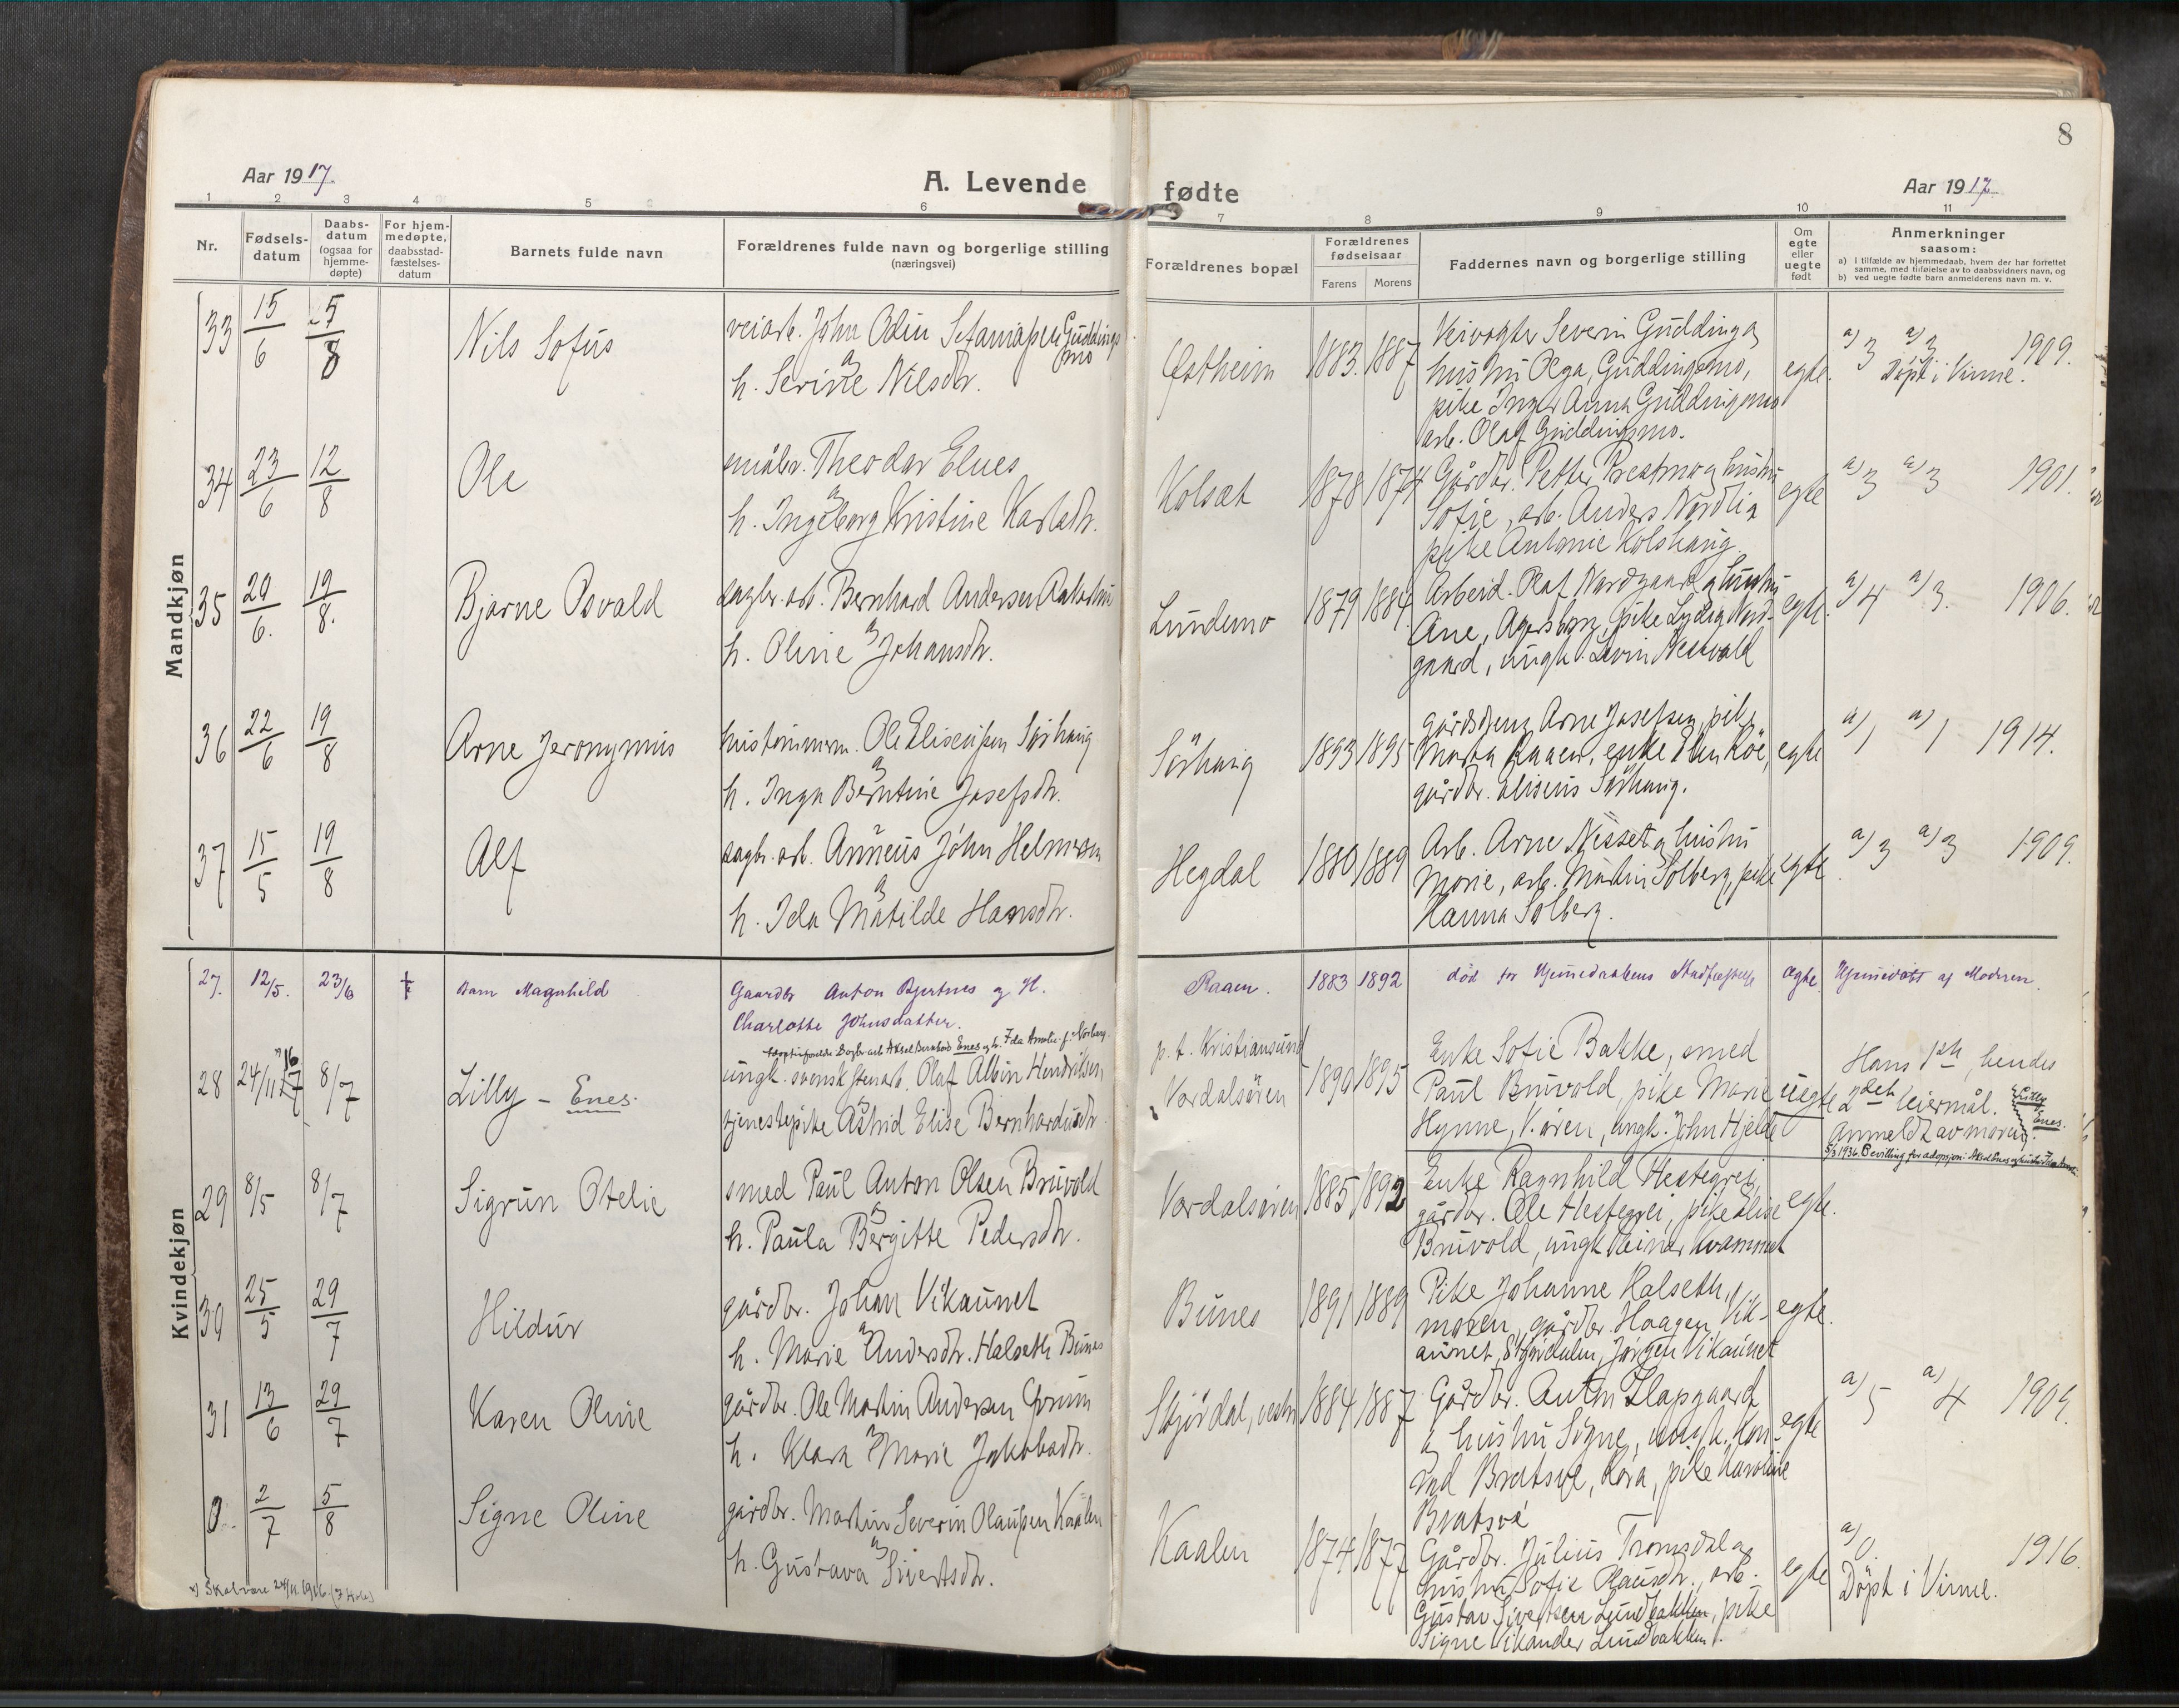 8
Aar 1917.
A. Levende
fødte
Aar 1917
1 2 3 4 5 6 7 8 9 10 11
Nr.
Fødsels-
datum
Daabs-
datum
(ogsaa for
hjemme-
døpte)
For hjem-
medøpte,
daabsstad-
fæstelses-
datum
Barnets fulde navn
Forældrenes fulde navn og borgerlige stilling
(næringsvei)
Forældrenes bopæl
Forældrenes
fødselsaar
Farens
Morens
Faddernes navn og borgerlige stilling
Om
egte
eller
uegte
født
Anmerkninger
saasom:
a) i tilfælde av hjemmedaab, hvem der har forrettet
samme, med tilføielse av to daabsvidners navn, og
b) ved uegte fødte barn anmelderens navn m. v.
Mandkjøn
33 15/6 5/8 Nils Sofus
veiarb. John Odin Guddings
mo
h. Serine Nilsdtr.
1883. 1887
Veivogter Severin Gudding og
hustru Olga, Guddingsmo,
pike Inger Anna Guddingsmo
arb. Olaf Guddingsmo.
egte.
a) 3 a) 3 1909.
Döpt i Vinne.
34 23/6 12/8 Ole
småbr. Theodor Elnes
h. Ingeborg Kristine Karlsdtr.
Kolsat 1878 1874
Gårdbr. Petter Prestmo og hustru
Sofie, arb. Anders Nordli og
pike Antonie Kolshaug
egte
a) 3 a) 3 1901.
35 29/6. 19/8. Bjarne Osvald
sagbr. arb. Bernhard Andersen
h. Oline Johansdtr.
Lundemo 1879 1884.
Arbeid. Olaf Nordgaard og hustru
Ane, pike Lydia Nord-
gaard, ungk.
egte.
a) 4 a) 3. 1906.
36 22/6 19/8 Arne Jeronymus
hustömmerm. Ole Eliseussen Sörhaug
h. Inga Berntine Josefsdtr.
Sörhaug 1893 1895
Gårdbrem Arne Josefsen, pike
Marta Raaen, enke
gårdbr. Eliseus Sörhaug.
egte
a) 1 a) 1 1914.
37 15/5 19/8 Alf
sagbr. arb. Anneus John Helmersen
h. Ida Matilde Hansdtr.
Hegdal 1880 1889
Arb. Arne Nesset og hustru
Marie, arb. Martin Solberg, pike
Hanna Solberg.
egte
a) 3 a) 3 1909.
Kvindekjøn
27. 12/5. 23/6 † Barn Magnhild
Gaardbr Anton Bjertnes og H.
Charlotte Johnsdatter.
Raaen. 1883 1892
død før Hjemmedaabens Stadfæstelse
egte.
Hjemmedøbt af Moderen.
28 24/11 16 8/7 Lilly – Enes.
Adoptivforeldre Sagbr. arb Aksel Bernhard Enes og h. Ida Amalie f. Norberg.
ungk. svensk stenarb. Olaf Albin Hendriksen
tjenestepike Astrid Elise Bernhardusdtr
p. t. Kristiansund
Vardalsören
1890 1895
Enke Sofie Bakke, smed
Paul Bruvold, pike Marie
Hynne, V.ören, ungk. John Hjelde
uegte
Hans 1ste, hendes
2det leiermål.
Anmeldt av moren.
Lilly
Enes.
29 8/5 8/7 Sigrun Otelie
smed Paul Anton Olsen Bruvold
h. Paula Bergitte Pedersdtr.
Vardalsören 1885 1892
Enke Ragnhild Hestegrei,
gårdbr. Ole Hestegrei, pike Elise
Bruvold, ungk. Einar Kvammet
egte.
30 25/5 29/7 Hildur
gårdbr. Johan Vikaunet
h. Marie Andersdtr. Halseth Bunes
Bunes 1891 1889
Pike Johanne Halseth,
gårdbr. Haagen Vik-
aunet, Stjördalen, Jörgen Vikaunet
egte.
31 13/6 29/7 Karen Oline
gårdbr. Ole Martin Andersen Grunn
h. Klara Marie Jakobsdtr.
Skjördal, vestre 1884 1887
Gårdbr. Anton Slapgaard
og hustru Signe, ungk. Kon-
rad Bratsve, Röra, pike Karoline
Bratsve
egte
a) 5 a) 4 1909.
2/7 5/8 Signe Oline
gårdbr. Martin Severin Olaussen Kaalen
h. Gustava Sivertsdtr.
Kaalen 1874 1877
Gårdbr. Julius Tromsdal og
hustru Sofie Olausdtr., arb.
Gustav Sivertsen Lundbakken, pike
Signe Vikander Lundbakken.
egte
a) 0. 1916.
Döpt i Vinne.
x) Skal være 24/11 1916.